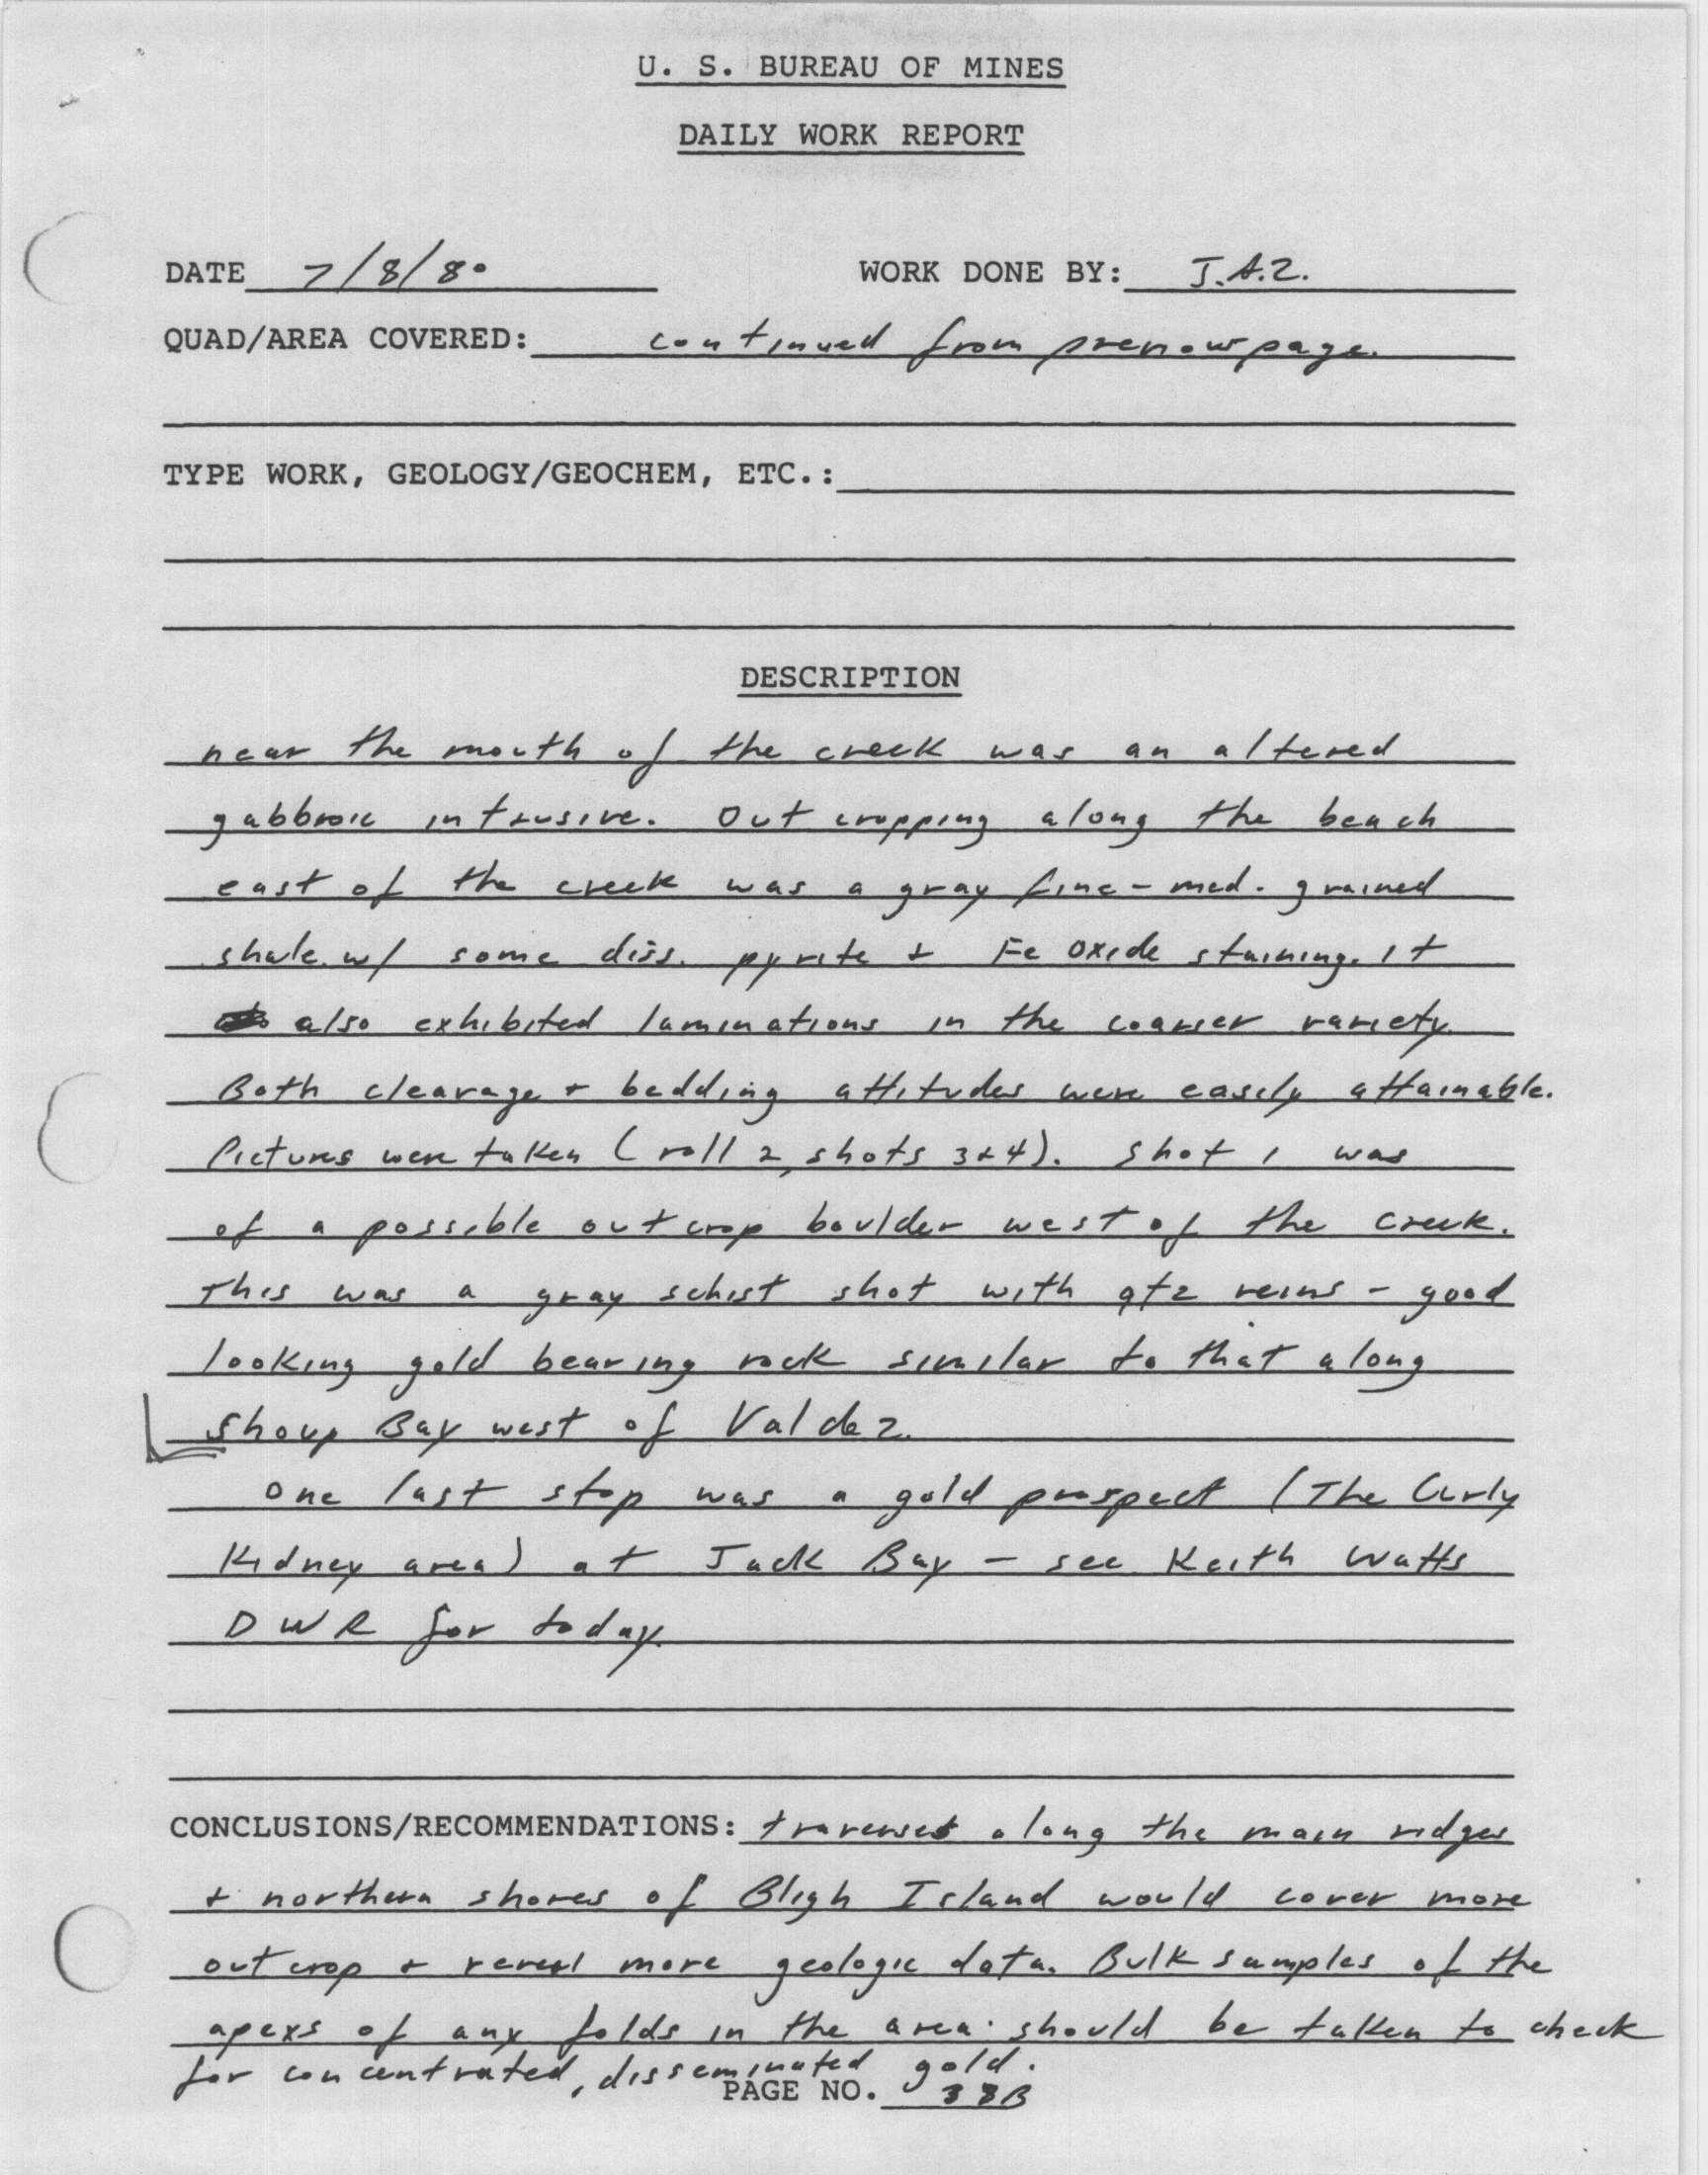 U. S. BUREAU OF MINES
DAILY WORK REPORT
DATE 7/8/80 WORK DONE BY: J.A.Z.
QUAD/AREA COVERED: continued from previous page.
TYPE WORK, GEOLOGY/GEOCHEM, ETC.:
DESCRIPTION
near the mouth of the creek was an altered
gabbroic intrusive. Out cropping along the beach
east of the creek was a gray fine - med. grained
shale w/ some diss. pyrite + Fe oxide staining. It
also exhibited laminations in the coarser variety.
Both cleavage + bedding attitudes were easily attainable.
Pictures were taken (roll 2, shots 3+4). Shot 1 was
of a possible outcrop boulder west of the creek.
This was a gray schist shot with qtz veins - good
looking gold bearing rock similar to that along
Shoup Bay west of Valdez.
One last stop was a gold prospect (The Curly
Kidney area) at Jack Bay - see Keith Watts
DWR for today.
CONCLUSIONS/RECOMMENDATIONS: traverses along the main ridges
+ northern shores of Bligh Island would cover more
outcrop + reveal more geologic data. Bulk samples of the
apexs of any folds in the area should be taken to check
for concentrated, disseminated gold.
PAGE NO. 38B